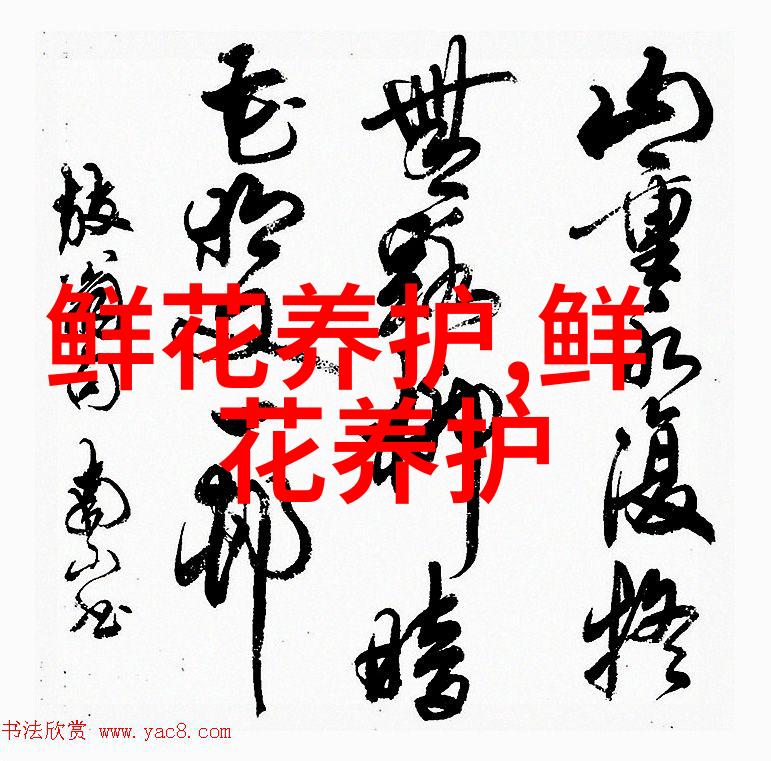 山重水復疑
無路柳暗
花明又一邨
放翁句
鲜花养护,鲜
花养护
书法欣赏 www.yac8.com